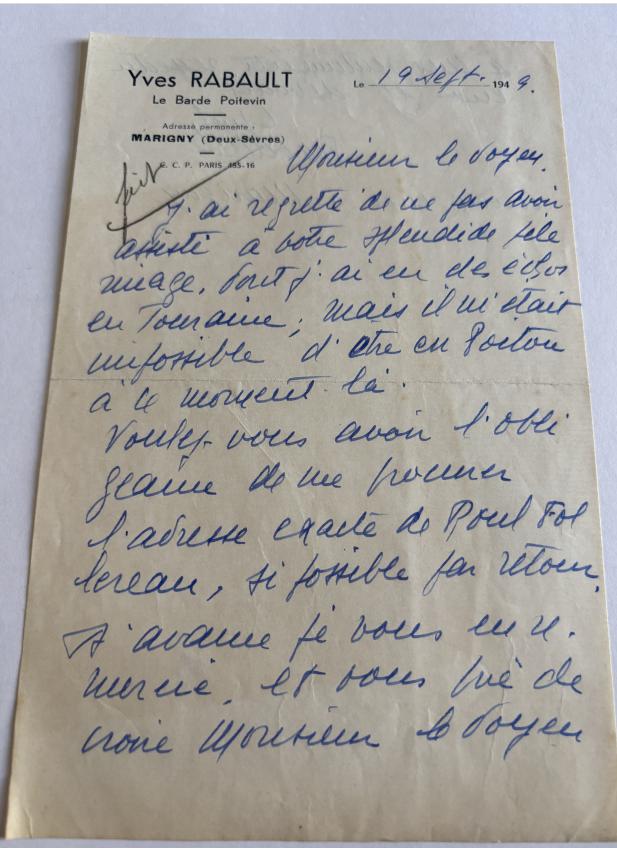 Yves RABAULT
Le Barde Poitevin
Le 19 Sept. 1949.
Adresse permanente :
MARIGNY (Deux-Sèvres)
C. C. P. PARIS 455-16
fait
Monsieur le Doyen.
J'ai regretté de ne pas avoir
assisté à votre splendide pèle
rinage, dont j'ai eu des échos
en Touraine ; mais il m'était
impossible d'être en Poitou
à ce moment là.
Voulez-vous avoir l'obli
geance de me procurer
l'adresse exacte de Raoul Fol
lereau, si possible par retour.
D'avance je vous en re-
mercie, et vous prie de
croire Monsieur le Doyen